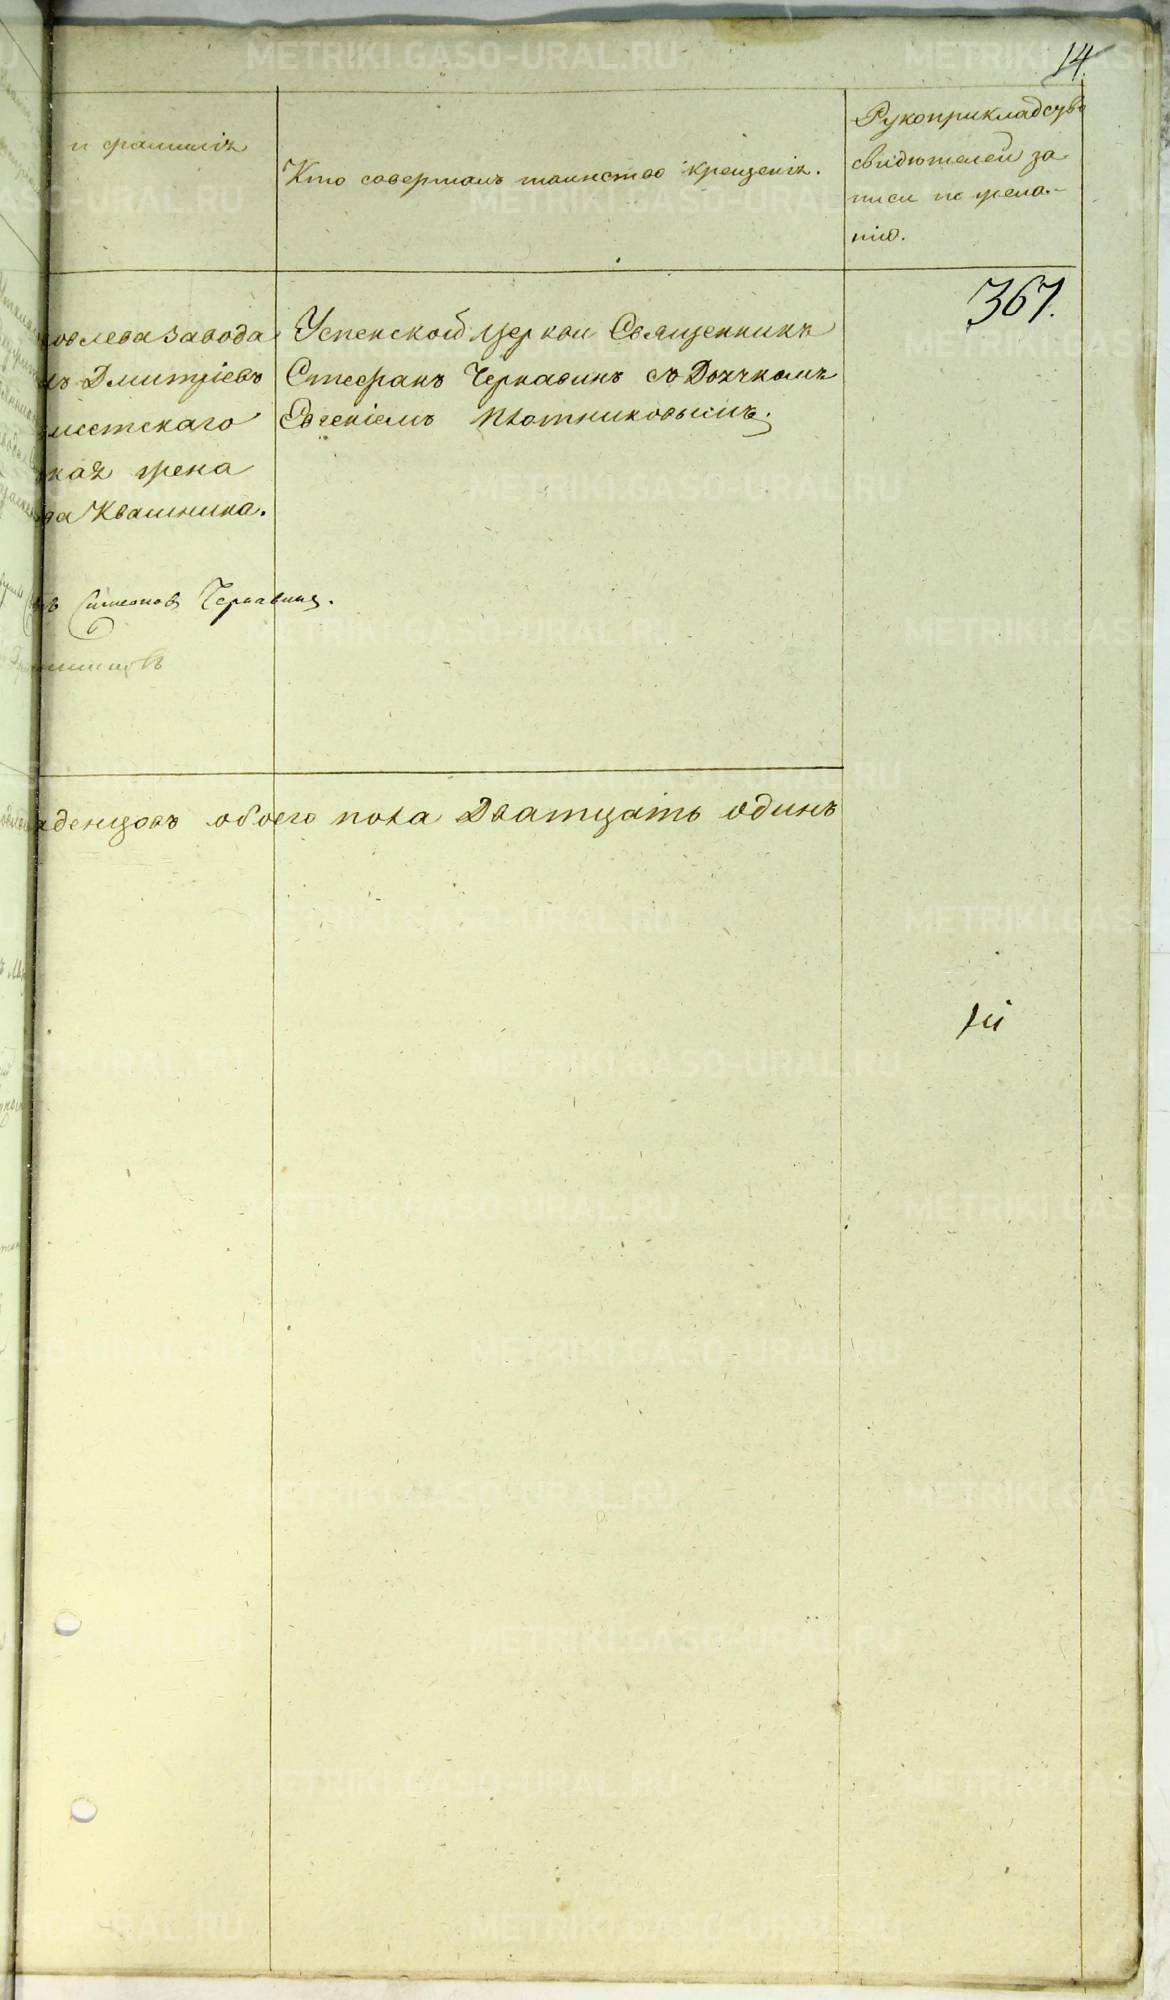 14.
и фамилія
Кто совершалъ таинство крещенія.
Рукоприкладство
свидѣтелей за
писи по жела-
нію.
367.
завода
Дмитріевъ
жена
Квашнина.
Успенской Церкви Священникъ
Стефанъ Чернавинъ съ Дьячкомъ
Евгеніемъ Плотниковымъ.
Симеоновъ Чернавинъ.
обоего пола Дватцать одинъ
METRIKI.GASO-URAL.RU